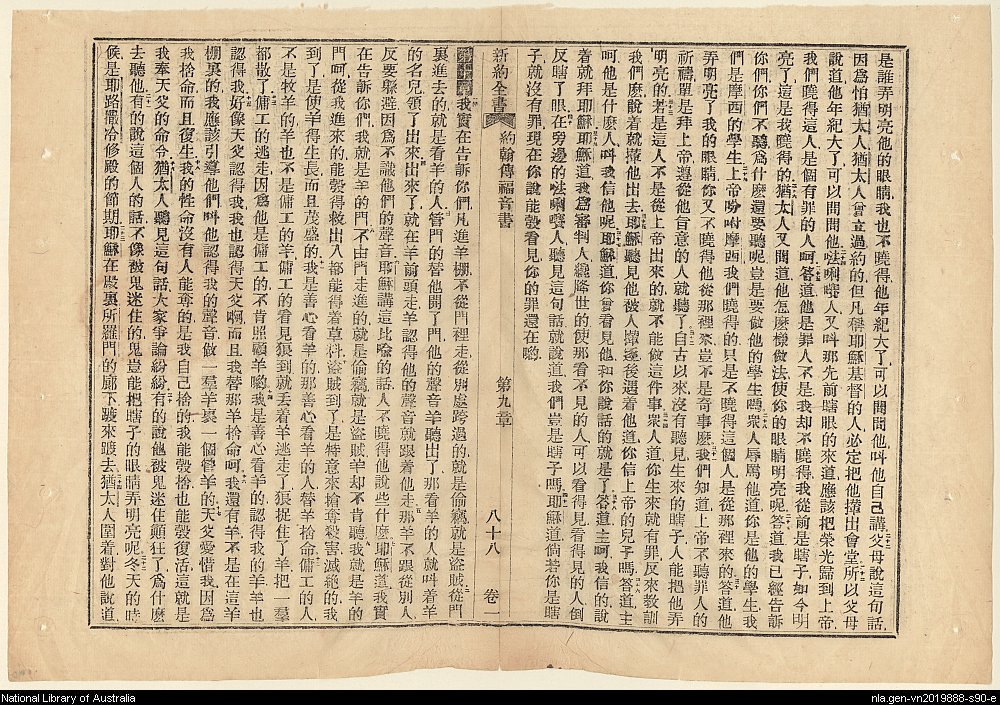 是誰弄明亮他的眼睛我也不曉得他年紀大了可以問問他叫他自己講父母說這句話
因爲怕猶太人猶太人曾立過約的但凡稱耶穌基督的人必定把他攆出會堂所以父母
說道他年紀大了可以問問他法唎㘔人又叫那先前瞎眼的來道應該把榮光歸到上帝
我們曉得這人是個有罪的人呵答道他是罪人不是我却不曉得我從前是瞎子如今明
亮了這是我曉得的猶太人又問道他怎麼樣做法使你的眼睛明亮呢答道我已經告訴
你們你們不聽爲什麼還要聽呢豈是要做他的學生嗎衆人辱罵他道你是他的學生我
們是摩西的學生上帝吩咐摩西我們曉得的只是不曉得這個人是從那裡來的答道他
弄明亮了我的眼睛你又不曉得他從那裡來豈不是奇事麼我們知道上帝不聽罪人的
祈禱單是拜上帝遵從他旨意的人就聽了自古以來沒有聽見生來的瞎子人能把他弄
明亮的若是這人不是從上帝出來的就不能做這件事衆人道你生來就有罪反來教訓
我們麼說着就攆他出去耶穌聽見他被人攆逐後遇着他道你信上帝的兒子嗎答道主
呵他是什麼人叫我信他呢耶穌道你曾看見他和你說話的就是了答道主呵我信的說
着就拜耶穌耶穌道我爲審判人纔降世的使那看不見的人可以看得見看得見的人倒
反瞎了眼在旁邊的法唎㘔人聽見這句話就說道我們豈是瞎子嗎耶穌道倘若你是瞎
子就沒有罪現在你說能彀看見你的罪還在喲
新約全書 約翰傳福音書 第九章 八十八 卷一
第十章我實在告訴你們凡進羊棚不從門裡走從別處跨過的就是偷竊就是盜賊從門
裏進去的就是看羊的人管門的替他開了門他的聲音羊聽出了那看羊的人就叫着羊
的名兒領了出來出來了就在羊前頭走羊認得他的聲音就跟着他走那羊不跟從別人
反要躲避因爲不識他們的聲音耶穌講這比喻的話人不曉得他說些什麼耶穌道我實
在告訴你們我就是羊的門不由門走進的就是偷竊就是盜賊羊却不肯聽我就是羊的
門呵從我進來的能彀得救出入都能得着草料盜賊到了是特意來搶奪殺害滅絕的我
到了是使羊得生長而且茂盛的我是善心看羊的那善心看羊的人替羊捨命傭工的人
不是牧羊的羊也不是傭工的羊傭工的看見狼到就丟着羊逃走了狼捉住了羊把一羣
都散了傭工的逃走因爲他是傭工的不肯照顧羊喲我是善心看羊的認得我的羊羊也
認得我好像天父認得我我也認得天父啊而且我替那羊捨命呵我還有羊不是在這羊
棚裏的我應該引導他們叫他認得我的聲音做一羣羊裏一個管羊的天父愛惜我因爲
我捨命而且復生我的性命沒有人能奪的是我自己捨的我能彀捨也能彀復活這就是
我奉天父的命令猶太人聽見這句話大家爭論紛紛有的說他被鬼迷住顛狂了爲什麼
去聽他有的說這個人的話不像被鬼迷住的鬼豈能把瞎子的眼睛弄明亮呢冬天的時
候是耶路撒冷修殿的節期耶穌在殿裏所羅門的廊下踱來踱去猶太人圍着對他說道
National Library of Australia
nla.gen-vn2019888-s90-e